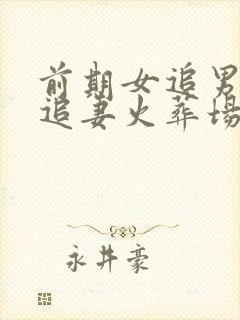 前期女追男
追妻火葬场
永井豪